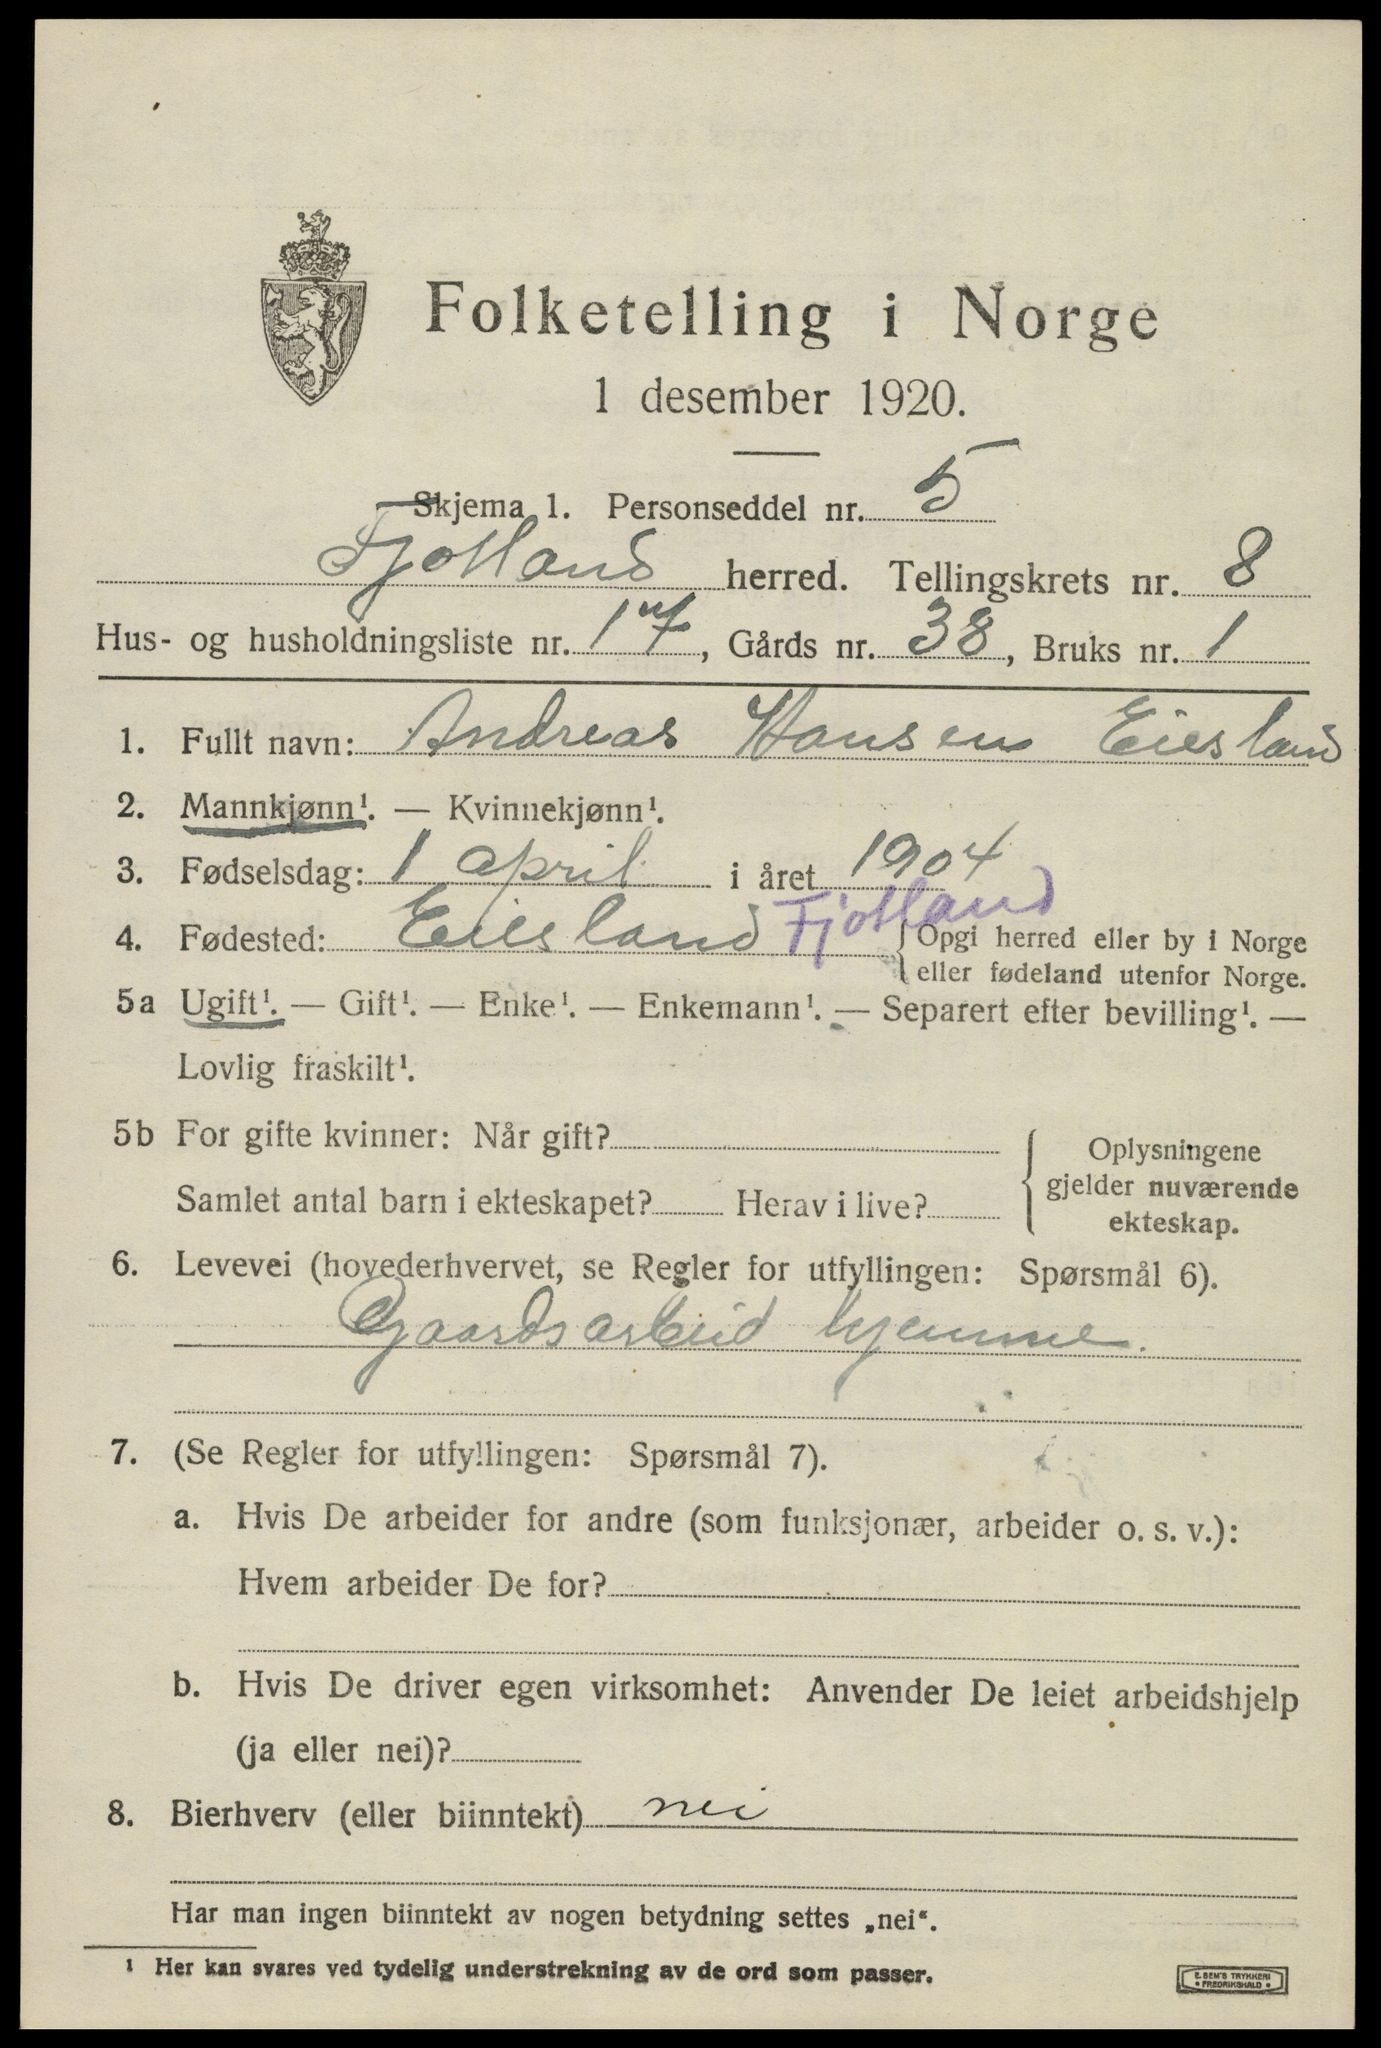 Folketelling i Norge
1 desember 1920.
Skjema 1. Personseddel nr. 5
Fjotland herred. Tellingskrets nr. 8
Hus- og husholdningsliste nr. 17, Gårds nr. 38, Bruks nr. 1
1. Fullt navn: Andreas Hansen Eiesland
2. Mannkjønn¹. — Kvinnekjønn¹.
3. Fødselsdag: 1 april i året 1904
4. Fødested: Eiesland Fjotland { Opgi herred eller by i Norge
eller fødeland utenfor Norge.
5a Ugift¹. — Gift¹. — Enke¹. — Enkemann¹. — Separert efter bevilling¹. —
Lovlig fraskilt¹.
5b For gifte kvinner: Når gift?
Samlet antal barn i ekteskapet? Herav i live?
Oplysningene
gjelder nuværende
ekteskap.
6. Levevei (hovederhvervet, se Regler for utfyllingen: Spørsmål 6).
Gaardsarbeid hjemme.
7. (Se Regler for utfyllingen: Spørsmål 7).
a. Hvis De arbeider for andre (som funksjonær, arbeider o. s. v.):
Hvem arbeider De for?
b. Hvis De driver egen virksomhet: Anvender De leiet arbeidshjelp
(ja eller nei)?
8. Bierhverv (eller biinntekt) nei
Har man ingen biinntekt av nogen betydning settes „nei“.
¹ Her kan svares ved tydelig understrekning av de ord som passer.
E. SEM'S TRYKKERI
• FREDRIKSHALD •